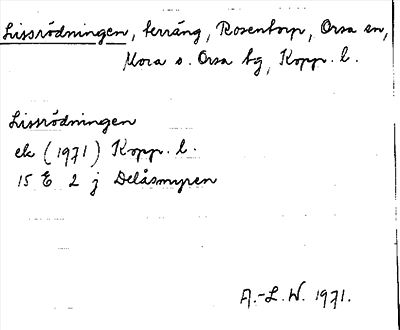 Lissrödningen, terräng, Rosentorp, Orsa sn,
Mora o. Orsa tg, Kopp. l.
Lissrödningen
ek (1971) Kopp. l.
15 E 2 j Delåsmyren
A.-L.W. 1971.